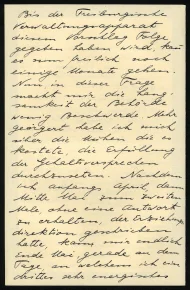 Bis der Freiburgische
Verwaltungsapparat
diesem Vorschlag Folge
gegeben haben wird, kann
es nun freilich noch
einige Monate gehen.
Nun, in dieser Frage
macht mir die Lang-
samkeit der Behörde
wenig Beschwerde. Mehr
geärgert habe ich mich
über die Mühen die es
kostete die Erfüllung
der Gehaltsversprechen
durchzusetzen. Nachdem
ich anfangs April, dann
Mitte Mai zum zweiten
Male ohne eine Antwort
zu erhalten, der Erziehungs-
direktion geschrieben
hatte, kam mir endlich
Ende Mai gerade an dem
Tage, an welchem ich ein
drittes sehr energisches